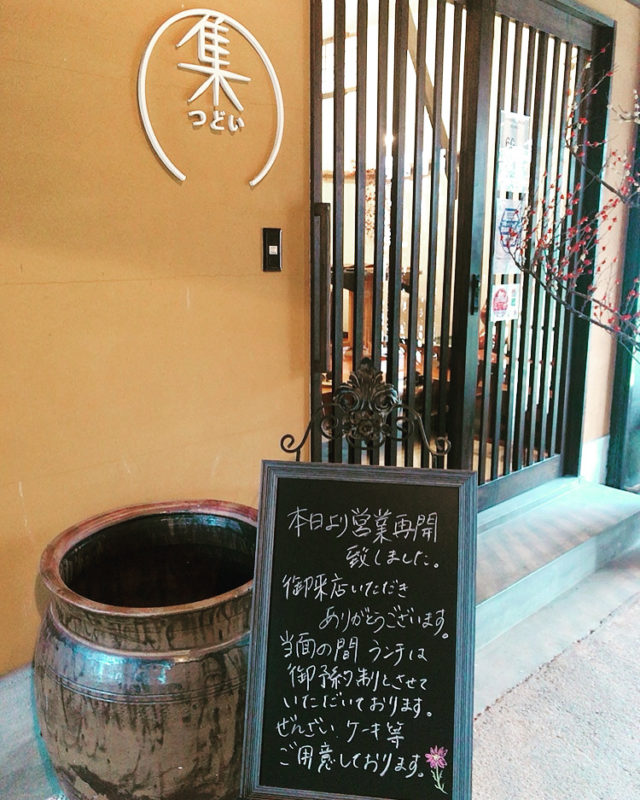 集
つどい
本日より営業再開
致しました。
御来店いただき
ありがとうございます。
当面の間 ランチは
御予約制とさせて
いただいております。
ぜんざい、ケーキ等
ご用意しております。